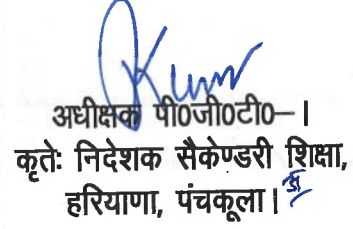 अधीक्षक पी0जी0टी0– I
कृतेः निदेशक सैकेण्डरी शिक्षा,
हरियाणा, पंचकूला।